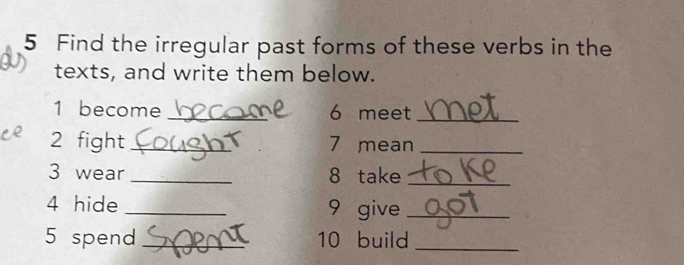 5 Find the irregular past forms of these verbs in the
texts, and write them below.
1 become became 6 meet met
2 fight fought 7 mean
3 wear 8 take toke
4 hide 9 give got
5 spend spent 10 build